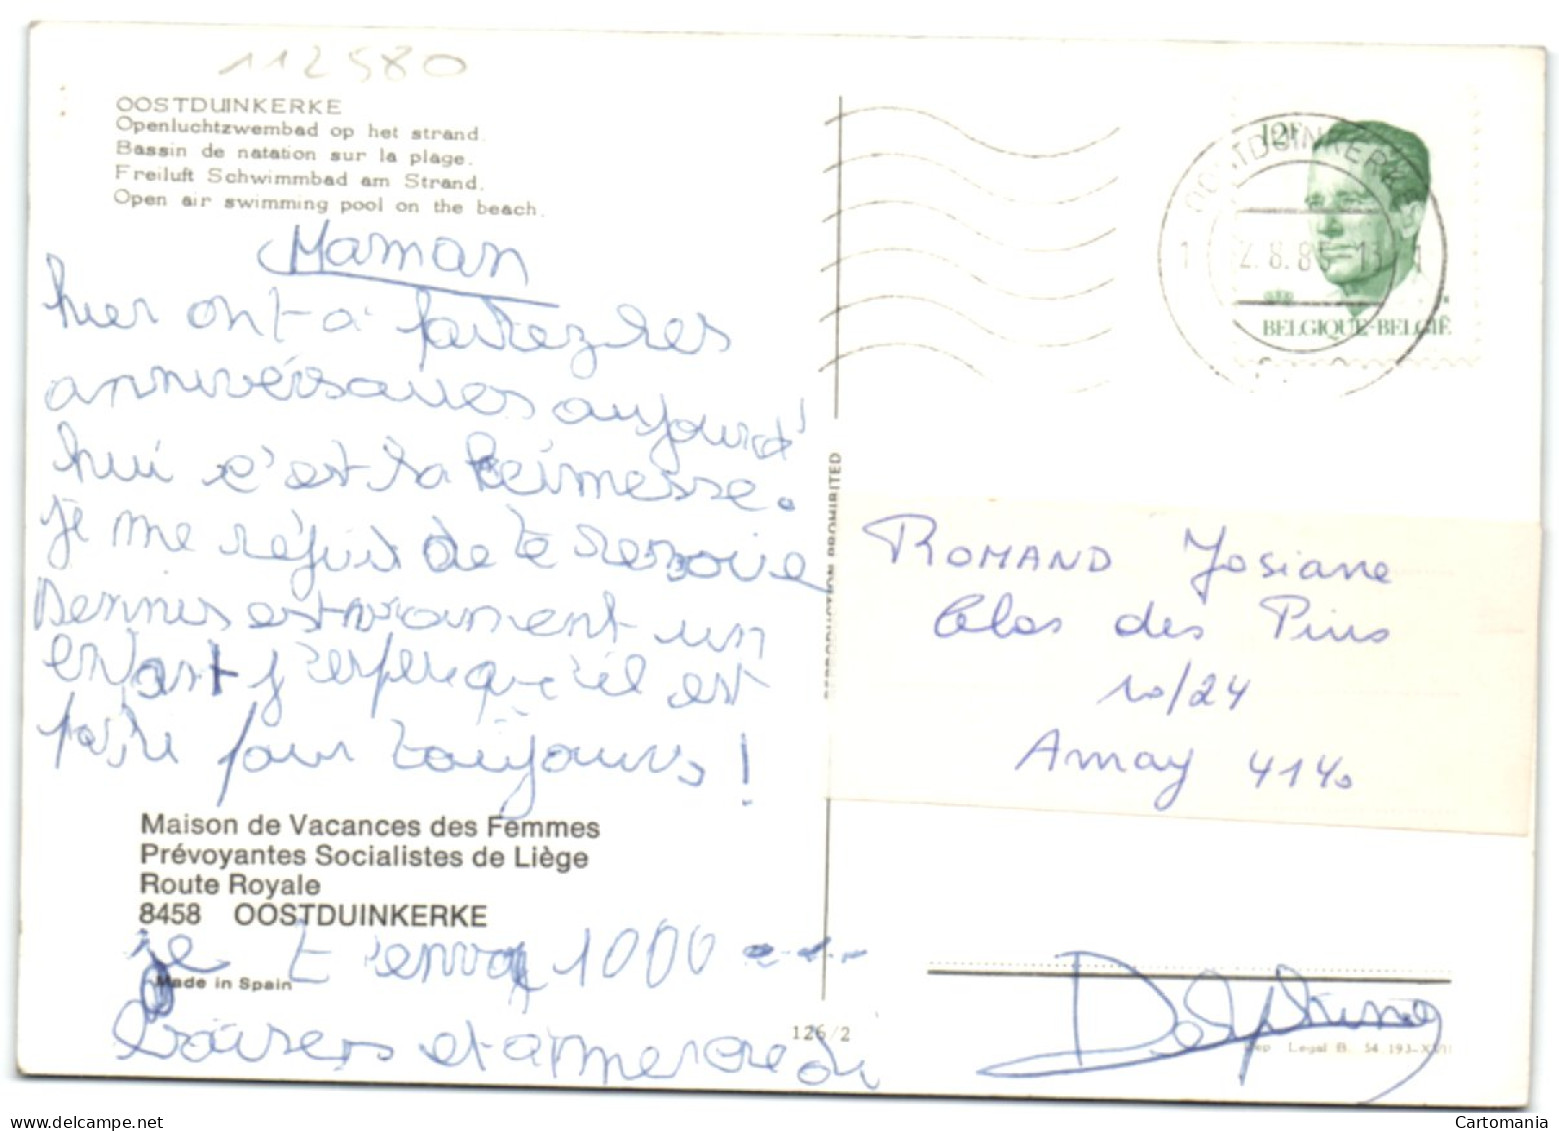 112580
OOSTDUINKERKE
Openluchtzwembad op het strand.
Bassin de natation sur la plage.
Freiluft Schwimmbad am Strand.
Open air swimming pool on the beach.
Maman
hier ont a les
anniversaires aujourd'
hui c'est la keirmesse.
je me réjuis de te
Dennis est vraiment un
enfant j'espere qu'il est
pour toujours!
Maison de Vacances des Femmes
Prévoyantes Socialistes de Liège
Route Royale
8458 OOSTDUINKERKE
je t'envoi 1000
Made in Spain
baisers et a mercredi
REPRODUCTION PROHIBITED
126/2
12F
OOSTDUINKERKE
BELGIQUE-BELGIË
ROMAND Josiane
Clos des Pins
10/24
Amay 4140
Delphine
Dep. Legal B. 54.193-XVII
Cartomania